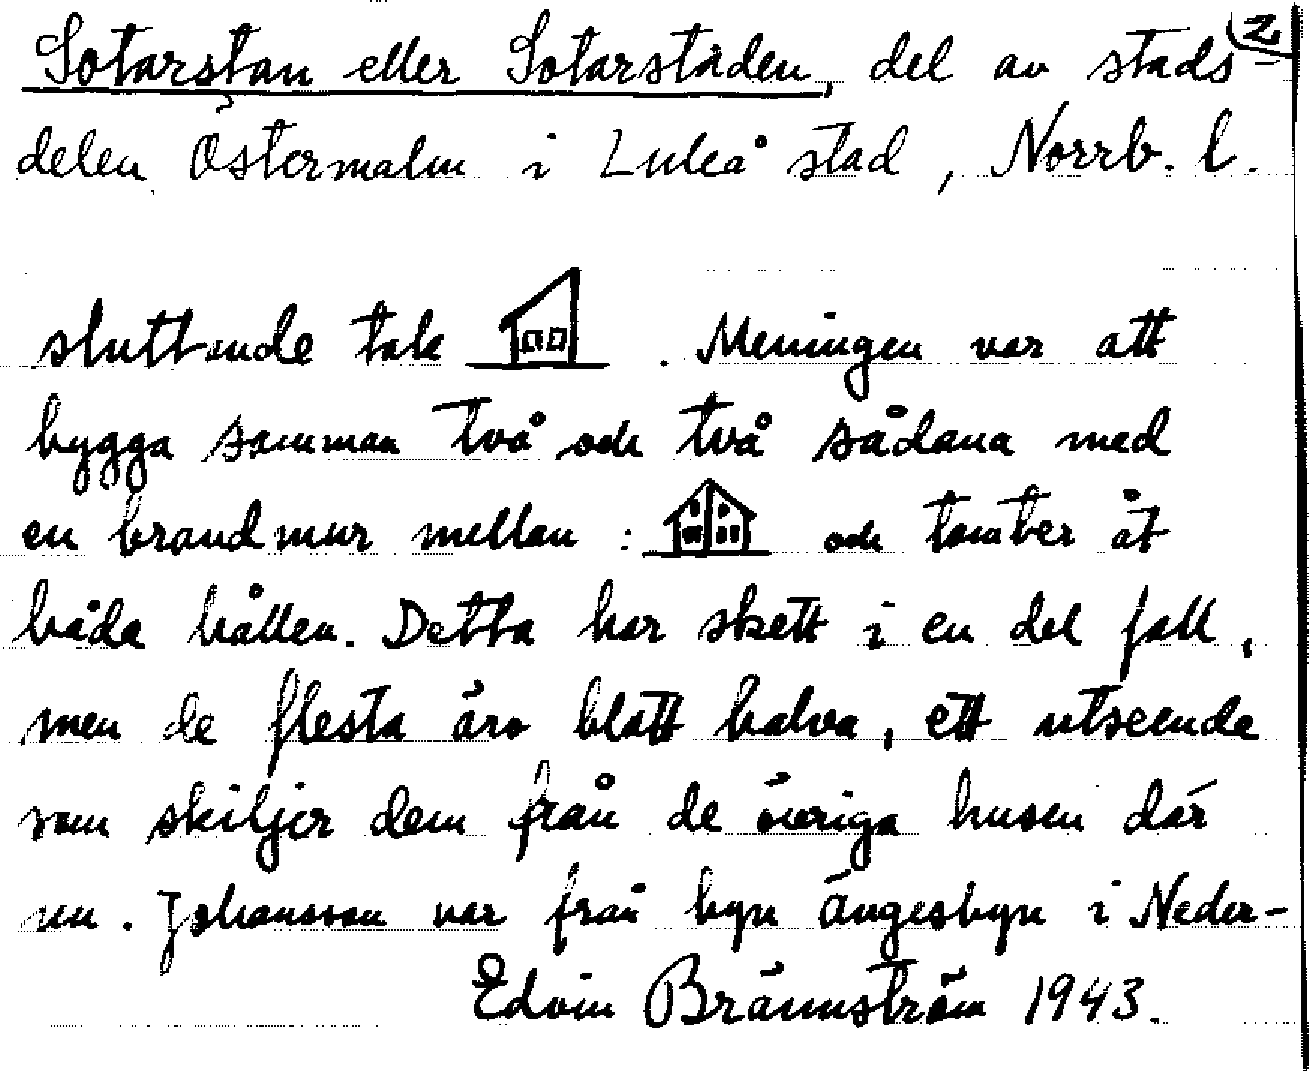 Sotarstan eller Sotarstaden, del av stads- 2
delen Östermalm i Luleå stad, Norrb. l.
sluttande tak . Meningen var att
bygga samman två och två sådana med
en brandmur mellan : och tomter åt
båda hållen. Detta har skett i en del fall,
men de flesta äro blott halva, ett utseende
som skiljer dem från de övriga husen där
nu. Johansson var från byn Ängesbyn i Neder-
Edvin Brännström 1943.